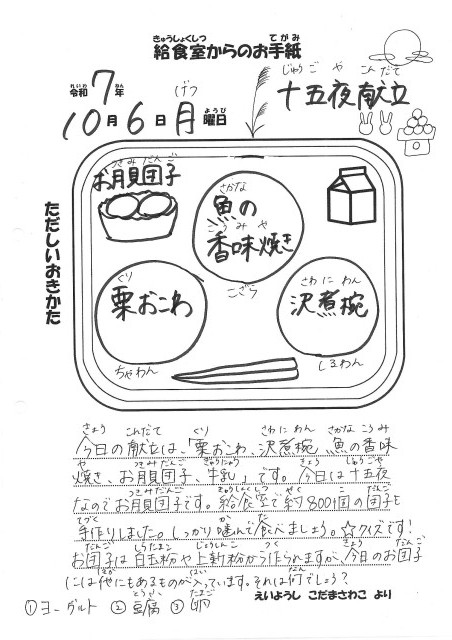 給食室からのお手紙
きゅうしょくしつ てがみ
令和7年
れいわ ねん
10月6日月曜日
がつ にち げつ ようび
十五夜献立
じゅうごや こんだて
お月見団子
つきみだんご
魚の
さかな
香味焼き
こうみや
こざら
栗おこわ
くり
ちゃわん
沢煮椀
さわにわん
しるわん
ただしいおきかた
きょう こんだて くり さわにわん さかな こうみ
今日の献立は、「栗おこわ、沢煮椀、魚の香味
や つきみだんご ぎゅうにゅう きょう じゅうごや
焼き、お月見団子、牛乳」です。今日は十五夜
つきみだんご きゅうしょくしつ やく こ だんご
なのでお月見団子です。給食室で約800個の団子を
てづく か た
手作りしました。しっかり噛んで食べましょう。☆クイズです!
だんご しらたまこ じょうしんこ つく きょう だんご
お団子は白玉粉や上新粉から作られますが、今日のお団子
ほか はい なん
には他にもあるものが入っています。それは何でしょう?
とうふ たまご
①ヨーグルト ②豆腐 ③卵
えいようし こだまさわこ より